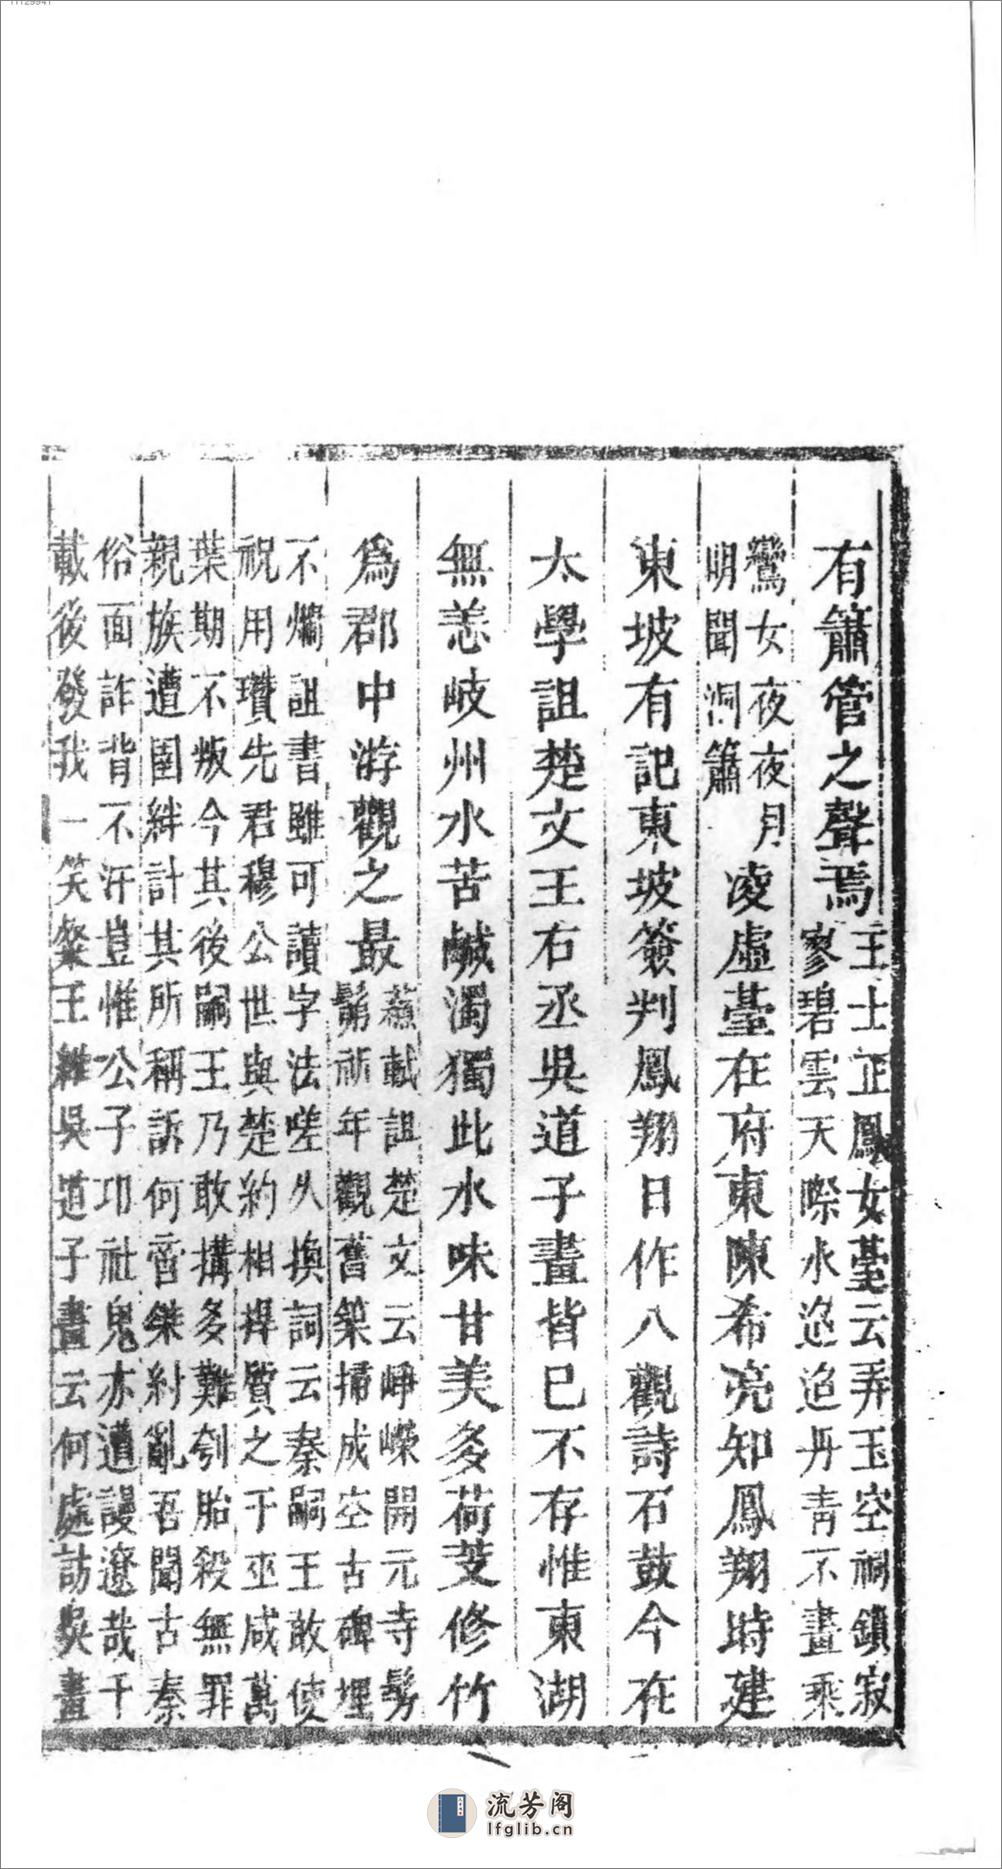 有簫管之聲焉王士正鳳女臺云弄玉空祠鎖寂
寥碧雲天際水迢迢丹青不畫乘
鸞女夜夜月
明聞洞簫
凌虛臺在府東陳希亮知鳳翔時建
東坡有記東坡簽判鳳翔日作八觀詩石鼓今在
太學詛楚文王右丞吳道子畫皆已不存惟東湖
無恙岐州水苦鹹濁獨此水味甘美多荷芰修竹
為郡中游觀之最蘇軾詛楚文云崢嶸開元寺髣
髴祈年觀舊築掃成空古碑埋
不爛詛書雖可讀字法嗟久換詞云秦嗣王敢使
祝用瓚先君穆公世與楚約相捍質之于巫咸萬
葉期不叛今其後嗣王乃敢搆多難刳胎殺無罪
親族遭圉絆計其所稱訴何啻桀紂亂吾聞古秦
俗面詐背不汗豈惟公子卬社鬼亦遭謾遼哉千
載後發我一笑粲王維吳道子畫云何處訪吳畫
流芳阁
lfglib.cn